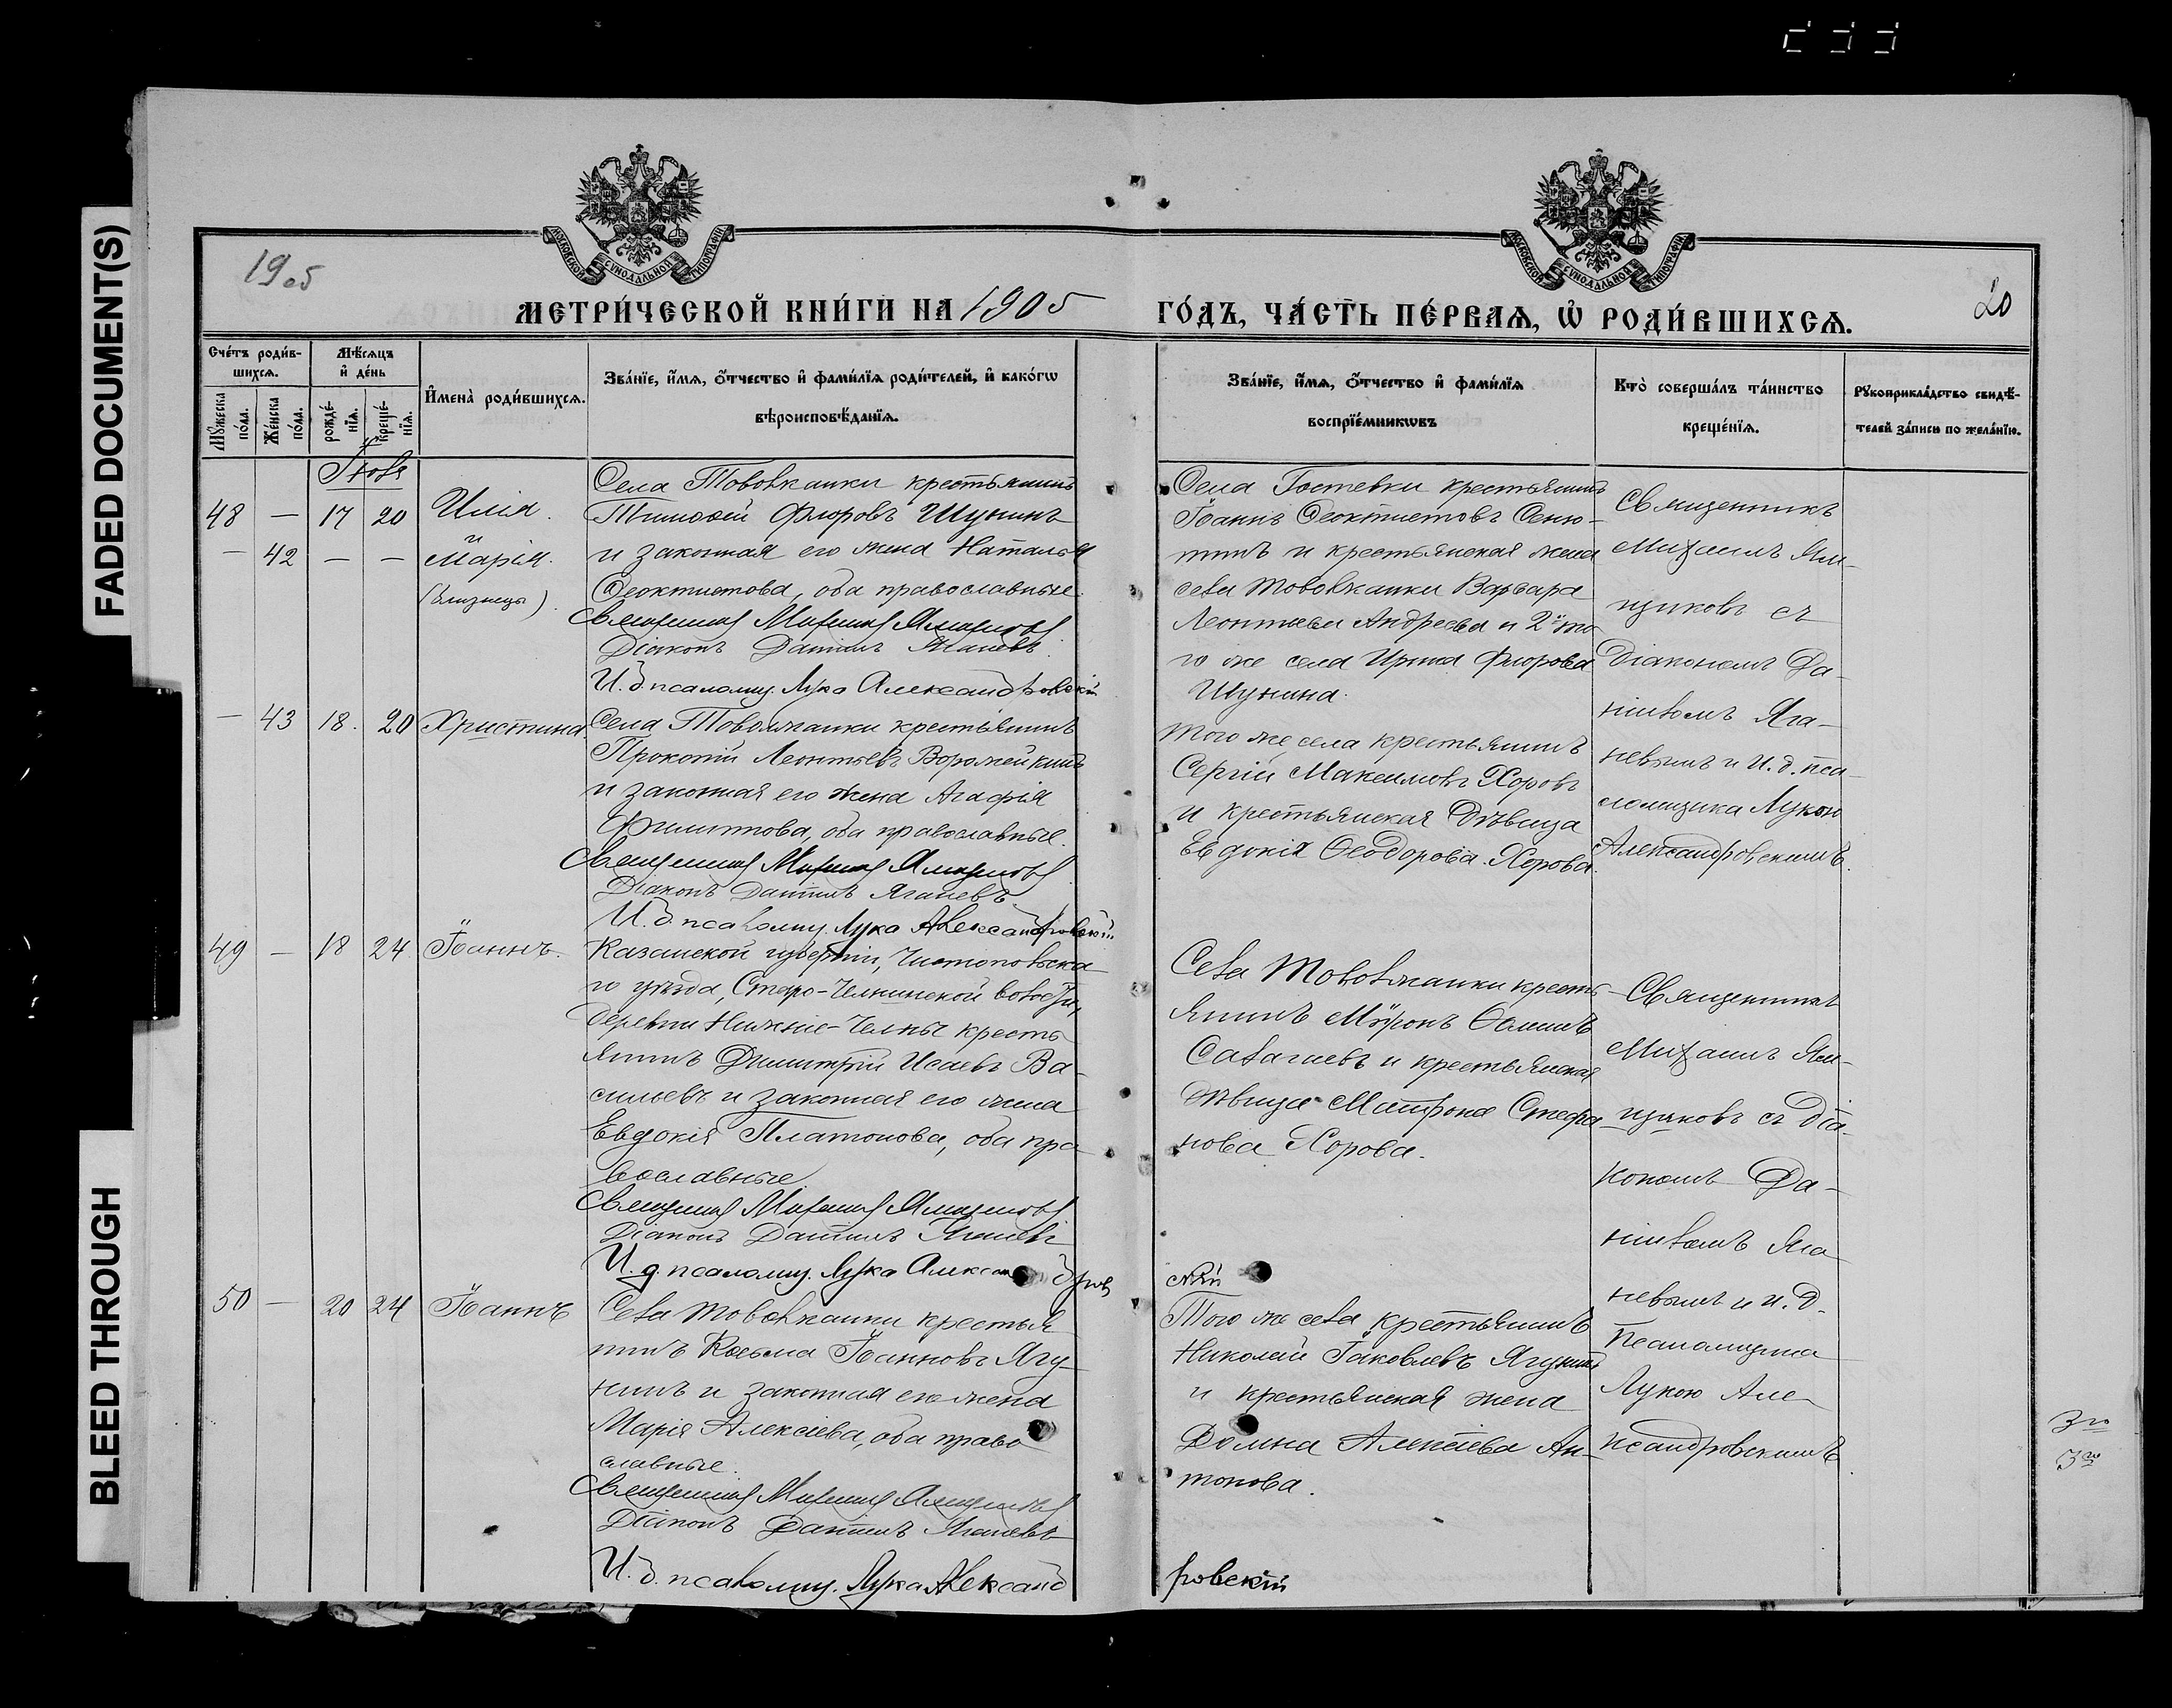 FADED DOCUMENT(S)
BLEED THROUGH
МОСКОВСКОЙ СУНОДАЛЬНОЙ ТИПОГРАФІИ
МОСКОВСКОЙ СУНОДАЛЬНОЙ ТИПОГРАФІИ
1905
20
МЕТРИ́ЧЕСКОЙ КНИ́ГИ НА 1905
ГО́ДЪ, ЧА́СТЬ ПЕ́РВАѦ, Ѡ РОДИ́ВШИХСѦ.
Сче́тъ роди́в-
шихсѧ.
Мѣ́сѧцъ
и де́нь
Мꙋ́жеска по́ла.
Же́нска по́ла.
рожде́-
нїѧ.
креще́-
нїѧ.
Имена̀ роди́вшихсѧ.
Зва́нїе, и́мѧ, о́тчество и фами́лїѧ роди́телей, и како́гѡ
вѣроисповѣ́данїѧ.
Зва́нїе, и́мѧ, о́тчество и фами́лїѧ
воспрїе́мникѡвъ
Кто̀ соверша́лъ та́инство
креще́нїѧ.
Рꙋкоприкла́дство свидѣ́-
телей за́писи по жела́нїю.
Іюля
48 — 17 20 Илія
и
— 42 — — Марія.
(близнецы).
Села Товолжанки крестьянинъ
Тимоѳей Флоровъ Шунинъ
и законная его жена Наталья
Ѳеоктистова, оба православные.
Священникъ Михаилъ Ямщиковъ
Діаконъ Даніилъ Яганевъ
И. д. псаломщ. Лука Александровскій
Села Гостевки крестьянинъ
Іоаннъ Ѳеоктистовъ Сеню-
тинъ и крестьянская жена
села Товолжанки Варвара
Леонтьева Андреева и 2й то
го же села Ирина Флорова
Шунина.
Священникъ
Михаилъ Ям-
щиковъ съ
діакономъ Да-
ніиломъ Яга-
невымъ и И. д. пса-
ломщика Лукою
Александровскимъ.
— 43 18. 20 Христина
Села Товолжанки крестьянинъ
Прокопій Леонтьевъ Ворожейкинъ
и законная его жена Агафія
Филиппова, оба православные.
Священникъ Михаилъ Ямщиковъ
Діаконъ Даніилъ Яганевъ
И. д. псаломщ. Лука Александровскій
Того же села крестьянинъ
Сергій Максимовъ Хоровъ
и крестьянская дѣвица
Евдокія Ѳеодорова Хорова.
49 — 18 24 Іоаннъ.
Казанской губерніи, Чистопольска
го уѣзда, Старо-Челнинской волости,
деревни Нижніе-Челны кресть
янинъ Димитрій Исаевъ Ва-
сильевъ и законная его жена
Евдокія Платонова, оба пра
вославные
Священникъ Михаилъ Ямщиковъ
Діаконъ Даніилъ Яганевъ
И. д. псаломщ. Лука Александров
скій
Села Товолжанки кресть
янинъ Мѵронъ
Салагаевъ и крестьянская
дѣвица Матрона Стефа
нова Хорова.
Священникъ
Михаилъ Ям-
щиковъ съ діа-
кономъ Да-
ніиломъ Яга
невымъ и и. д.
псаломщика
Лукою Але
ксандровскимъ
50 — 20 24 Іоаннъ
Села Товолжанки крестья
нинъ Косьма Іоанновъ Ягу-
нинъ и законная его жена
Марія Алексіева, оба право
славные.
Священникъ Михаилъ Ямщиковъ
Діаконъ Даніилъ Яганевъ
И. д. псаломщ. Лука Александ
ровскій
Того же села крестьянинъ
Николай Іаковлевъ Ягунинъ
и крестьянская жена
Домна Алексіева Ан-
тонова.